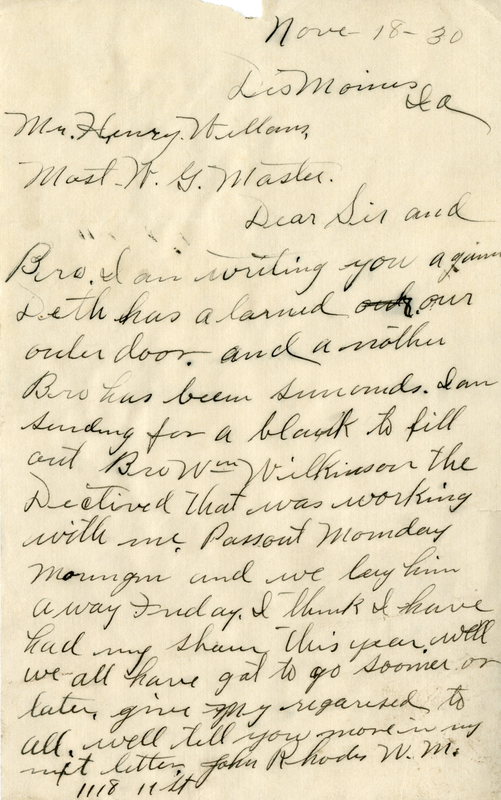 Nove - 18 - 30
Des Moines
Ia
Mr. Henry. Wellans,
Most. W. G. Master.
Dear Sir and
Bro. I am writing you again
Deth has alarned our
outer door. and a nother
Bro has been sumonds. I am
sending for a blank to fill
out Bro Wm Wilkinson the
Dectived that was working
with me. Passout Monday
Morngin and we lay him
a way Friday. I think I have
had my share this year. well
we all have got to go sooner or
later. give my regarised to
all. well till you more in my
next letter John Rhodes W. M.
1118 11 St